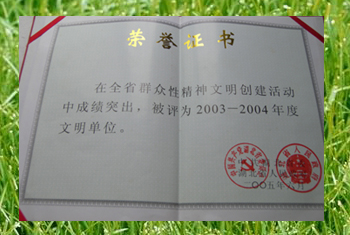 荣誉证书
在全省群众性精神文明创建活动
中成绩突出，被评为2003—2004年度
文明单位。